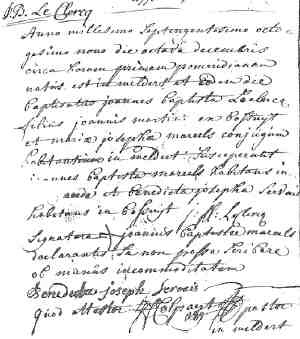 J.B. Le Clercq
Anno millesimo septengentesimo octo-
gesimo nono die octava decembris
circa horam primam pomeridianam
natus est in meldert et eodem die
baptisatus joannes baptista Leclerc
filius joannis martini ex Bassuyt
et maria josepha marcels conjugum
habitantium in meldert. susceperunt
joannes baptista marcels habitans in
et benedicta josepha servais
habitans in Bassuyt
signatura joannis baptistae marcels
declarantis se non posse scribere
ob manus incommoditatem
Benedicta joseph
quod attestor pastor
in meldert